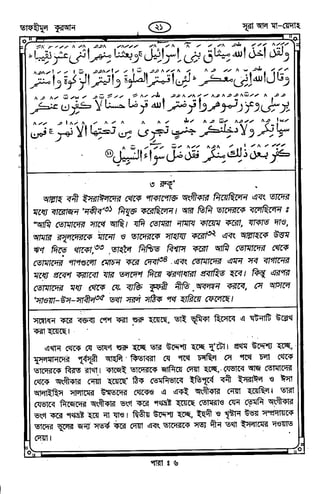 তাফহীমুল কুরআন
২১
সূরা আল মা-য়েদাহ
وَلَقَدْ اَخَذَ اللهُ مِيْثَاقَ بَنِيْ اِسْرَائِيْلَ ۚ وَبَعَثْنَا مِنْهُمُ اثْنَيْ عَشَرَ نَقِيْبًا ۭ
وَقَالَ اللهُ اِنِّيْ مَعَكُمْ ۭ لَئِنْ اَقَمْتُمُ الصَّلٰوةَ وَاٰتَيْتُمُ الزَّكٰوةَ وَاٰمَنْتُمْ
بِرُسُلِيْ وَعَزَّرْتُمُوْهُمْ وَاَقْرَضْتُمُ اللهَ قَرْضًا حَسَنًا لَّاُكَفِّرَنَّ عَنْكُمْ
سَيِّاٰتِكُمْ وَلَاُدْخِلَنَّكُمْ جَنّٰتٍ تَجْرِيْ مِنْ تَحْتِهَا الْاَنْهٰرُ ۚ فَمَنْ
كَفَرَ بَعْدَ ذٰلِكَ مِنْكُمْ فَقَدْ ضَلَّ سَوَاءَ السَّبِيْلِ
৩ রুকূ'
আল্লাহ বনী ইসরাঈলদের থেকে পাকাপোক্ত অংগীকার নিয়েছিলেন এবং তাদের
মধ্যে বারোজন 'নকীব' নিযুক্ত করেছিলেন। আর তিনি তাদেরকে বলেছিলেন ঃ
"আমি তোমাদের সাথে আছি। যদি তোমরা নামায কায়েম করো, যাকাত দাও,
আমার রসূলদেরকে মানো ও তাদেরকে সাহায্য করো এবং আল্লাহকে উত্তম
ঋণ দিতে থাকো, তাহলে নিশ্চিত বিশ্বাস করো আমি তোমাদের থেকে
তোমাদের পাপগুলো মোচন করে দেবো এবং তোমাদের এমন সব বাগানের
মধ্যে প্রবেশ করাবো যার তলদেশ দিয়ে ঝরণাধারা প্রবাহিত হবে। কিন্তু এরপর
তোমাদের মধ্য থেকে যে ব্যক্তি কুফরী নীতি অবলম্বন করবে, সে আসলে
'সাওয়া-উস-সাবীল' তথা সরল সঠিক পথ হারিয়ে ফেলেছে।
সম্বোধন করে বক্তব্য পেশ করা শুরু হয়েছে, তাই ভূমিকা হিসেবে এ ঘটনাটি উল্লেখ
করা হয়েছে।
এখান থেকে যে ভাষণ শুরু হচ্ছে তার উদ্দেশ্য হচ্ছে দু'টো। প্রথম উদ্দেশ্য হচ্ছে,
মুসলমানদের পূর্বসূরী আহলি কিতাবরা যে পথে চলছিল সে পথে চলা থেকে
তাদেরকে বিরত রাখা। কাজেই তাদেরকে জানিয়ে দেয়া হচ্ছে, যেভাবে আজ তোমাদের
থেকে অংগীকার নেয়া হয়েছে ঠিক তেমনিভাবে ইতিপূর্বে বনী ইসরাঈল ও ঈসা
আলাইহিস সালামের উম্মতদের থেকেও এ একই অংগীকার নেয়া হয়েছিল। তারা
যেভাবে নিজেদের অংগীকার ভংগ করে পথভ্রষ্ট হয়েছে তোমরাও যেন তেমনি অংগীকার
ভংগ করে পথভ্রষ্ট হয়ে না যাও। দ্বিতীয় উদ্দেশ্য হচ্ছে, ইহুদী ও খৃষ্টান উভয় সম্প্রদায়কে
তাদের ভুলের জন্য সতর্ক করে দেয়া এবং তাদেরকে সত্য দীন তথা ইসলামের দাওয়াত
দেয়া।
পারা ঃ ৬